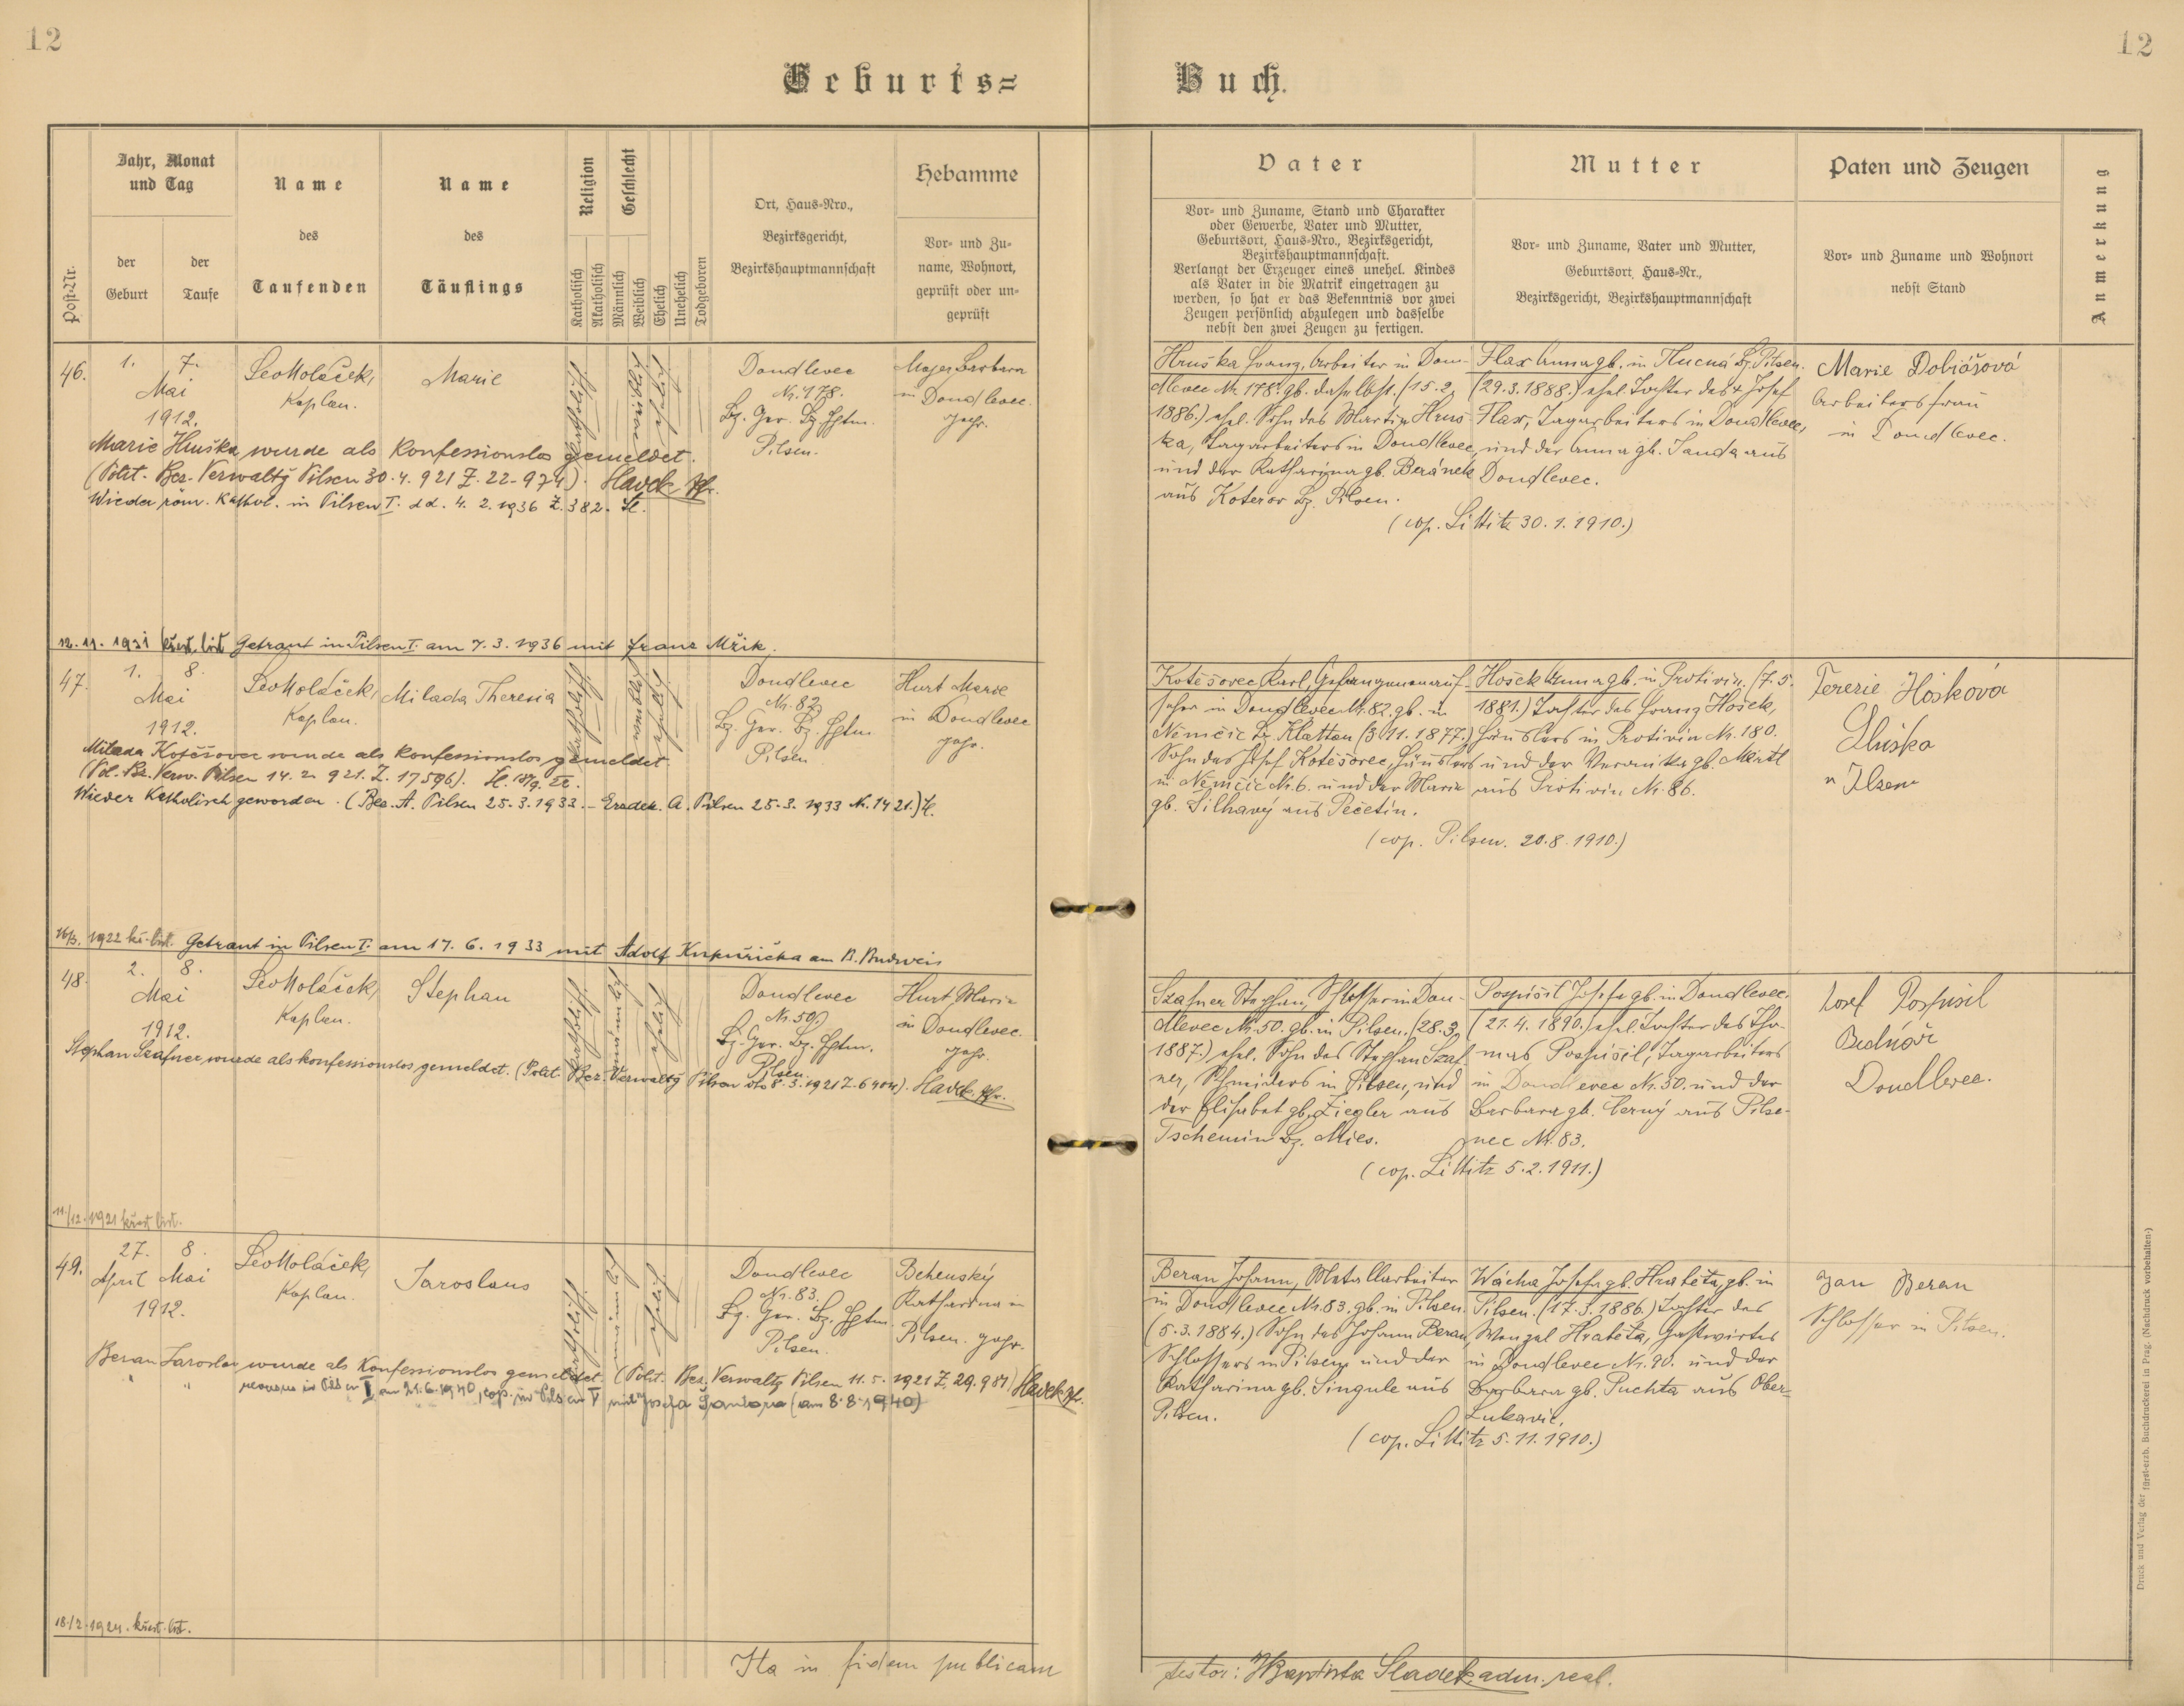 12
12
Geburts=
Buch.
Jahr, Monat
und Tag
Name
des
Taufenden
Name
des
Täuflings
Religion
Geschlecht
Ort, Haus-Nro.,
Bezirksgericht,
Bezirkshauptmannschaft
Hebamme
Vor- und Zu-
name, Wohnort,
geprüft oder un-
geprüft
Post-Nr.
der
Geburt
der
Taufe
Katholisch
Akatholisch
Männlich
Weiblich
Ehelich
Unehelich
Todgeboren
Vater
Vor- und Zuname, Stand und Charakter
oder Gewerbe, Vater und Mutter,
Geburtsort, Haus-Nro., Bezirksgericht,
Bezirkshauptmannschaft.
Verlangt der Erzeuger eines unehel. Kindes
als Vater in die Matrik eingetragen zu
werden, so hat er das Bekenntnis vor zwei
Zeugen persönlich abzulegen und dasselbe
nebst den zwei Zeugen zu fertigen.
Mutter
Vor- und Zuname, Vater und Mutter,
Geburtsort, Haus-Nr.,
Bezirksgericht, Bezirkshauptmannschaft
Paten und Zeugen
Vor- und Zuname und Wohnort
nebst Stand
Anmerkung
46.
1. 7.
Mai
1912.
Leo Holaček,
Kaplan.
Marie
katholisch.
weiblich
ehelich
Doudlevec
Nr. 178.
Bz. Ger. Bz. Hptm.
Pilsen.
Majer Barbara
in Doudlevec.
gepr.
Marie Hruška wurde als Konfessionslos gemeldet.
(Polit. Bez. Verwaltg Pilsen 30.4.921 Z. 22-974). Havek Pfr.
Wieder röm. Kathol. in Pilsen I. dd. 4.2.1936 Z. 382. H.
Hruška Franz, Arbeiter in Dou-
dlevec Nr. 178. gb. daselbst. (15.2.
1886.) ehel. Sohn des Martin Hruš-
ka, Tagarbeiters in Doudlevec
und der Katharina gb. Beránek
aus Koterov Bz. Pilsen.
Flax Anna gb. in Tlucná Bz. Pilsen.
(29.3.1888.) ehel. Tochter des + Josef
Flax, Tagarbeiters in Doudlevec,
und der Anna gb. Janda aus
Doudlevec.
(cop. Littitz 30.1.1910.)
Marie Dobiášová
Arbeitersfrau
in Doudlevec.
12.11.1931 křest. list Getraut in Pilsen I. am 7.3.1936 mit Franz Mřik.
47.
1. 8.
Mai
1912.
Leo Holaček,
Kaplan.
Milada Theresia
katholisch.
weiblich
ehelich
Doudlevec
Nr. 82.
Bz. Ger. Bz. Hptm.
Pilsen
Hurt Marie
in Doudlevec
gepr.
Milada Kotěšovec wurde als Konfessionslos gemeldet.
(Pol. Bz. Verw. Pilsen 14.2.921. Z. 17596).
Wieder Katholisch geworden. (Bez. A. Pilsen 25.3.1933. – Erzdek. A. Pilsen 25.3.1933 Nr. 1421.) H.
Kotěšovec Karl, Gefangenenauf-
seher in Doudlevec Nr. 82. gb. in
Němčic Bz. Klattau (3.11.1877.)
Sohn des Josef Kotěšovec, Häuslers
in Němčic Nr. 6. und der Marie
gb. Silhavý aus Pečetín.
Hošek Anna gb. in Protivin. (7.5.
1881.) Tochter des Franz Hošek,
Häuslers in Protivin Nr. 180.
und der Veronika gb. Mertl
aus Protivin Nr. 86.
(cop. Pilsen. 20.8.1910.)
Terezie Hošková
16/3. 1922 kř. list. Getraut in Pilsen I. am 17.6.1933 mit Adolf Kupuřička am B. Budweis
48.
2. 8.
Mai
1912.
Leo Holaček,
Kaplan.
Stephan
katholisch.
männlich
ehelich
Doudlevec
Nr. 50.
Bz. Ger. Bz. Hptm.
Pilsen.
Hurt Marie
in Doudlevec.
gepr.
Stephan Szafner wurde als konfessionslos gemeldet. (Polit. Bez. Verwaltg Pilsen dto 8.3.1921 Z. 6404). Havek Pfr.
Szafner Stephan, Schlosser in Dou-
dlevec Nr. 50. gb. in Pilsen. (28.3.
1887.) ehel. Sohn des Stephan Szaf-
ner, Schneiders in Pilsen, und
der Elisabet gb. Ziegler aus
Tschemin Bz. Mies.
Pospíšil Josefa gb. in Doudlevec.
(21.4.1890.) ehel. Tochter des Tho-
mas Pospíšil, Tagarbeiters
in Doudlevec Nr. 50. und der
Barbara gb. Černý aus Pilse-
nec Nr. 83.
(cop. Littitz 5.2.1911.)
Josef Pospíšil
Bednář
Doudlevec.
11./12. 1921 křest list.
49.
27. 8.
April Mai
1912.
Leo Holaček,
Kaplan.
Jaroslaus
katholisch.
männlich
ehelich
Doudlevec
Nr. 83.
Bz. Ger. Bz. Hptm.
Pilsen.
Behenský
Katharina in
Pilsen. gepr.
Beran Jaroslav wurde als Konfessionslos gemeldet. (Polit. Bez. Verwaltg Pilsen 11.5.1921 Z. 29.981) Havek Pfr.
" " reversus in Pilsen I am 21.6.1940, cop. in Pilsen V mit Josefa (am 8.8.1940)
Beran Johann, Metallarbeiter
in Doudlevec Nr. 83. gb. in Pilsen.
(5.3.1884.) Sohn des Johann Beran,
Schlossers in Pilsen und der
Katharina gb. Singule aus
Pilsen.
Wácha Josefa gb. Hraběta, gb. in
Pilsen. (17.3.1886.) Tochter des
Wenzel Hraběta, Gastwirtes
in Doudlevec Nr. 90. und der
Barbara gb. Puchta aus Ober-
Lukavic.
(cop. Littitz 5.11.1910.)
Jan Beran
Schlosser in Pilsen.
18./2. 1924. křest. list.
Ita in fidem publicam
testor: J. Baptista Sladek adm. real.
Druck und Verlag der fürst-erzb. Buchdruckerei in Prag. (Nachdruck vorbehalten.)